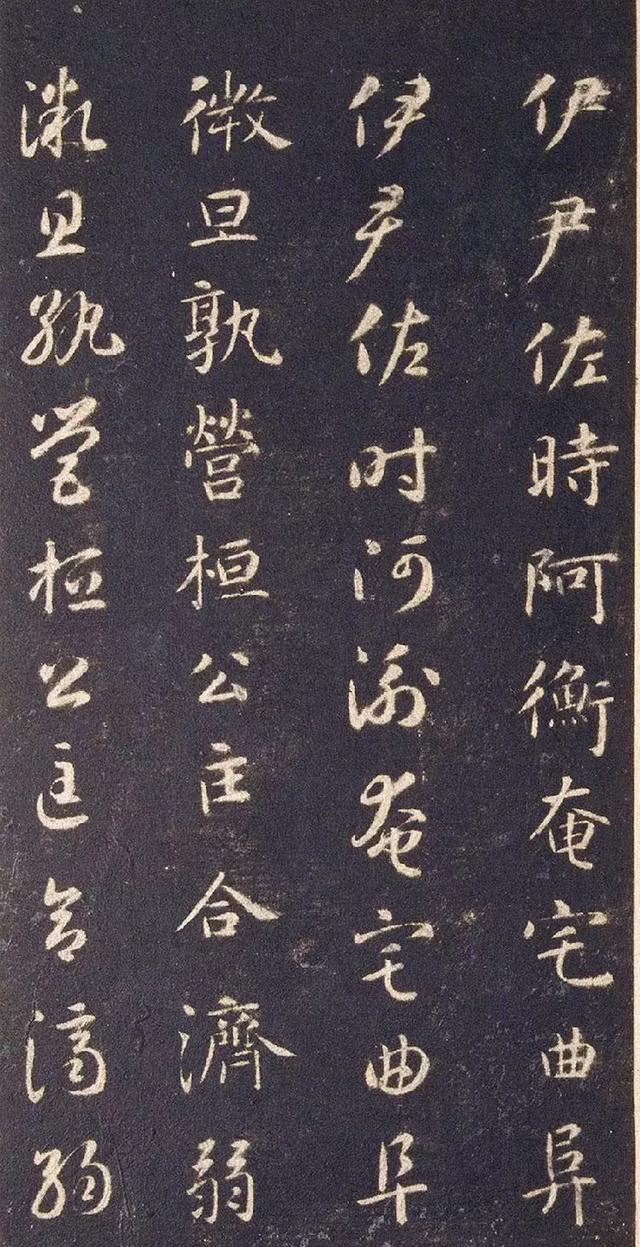 伊尹佐時阿衡奄宅曲阜
伊尹佐时阿衡奄宅曲阜
微旦孰營桓公匡合濟弱
微旦孰营桓公匡合濟弱